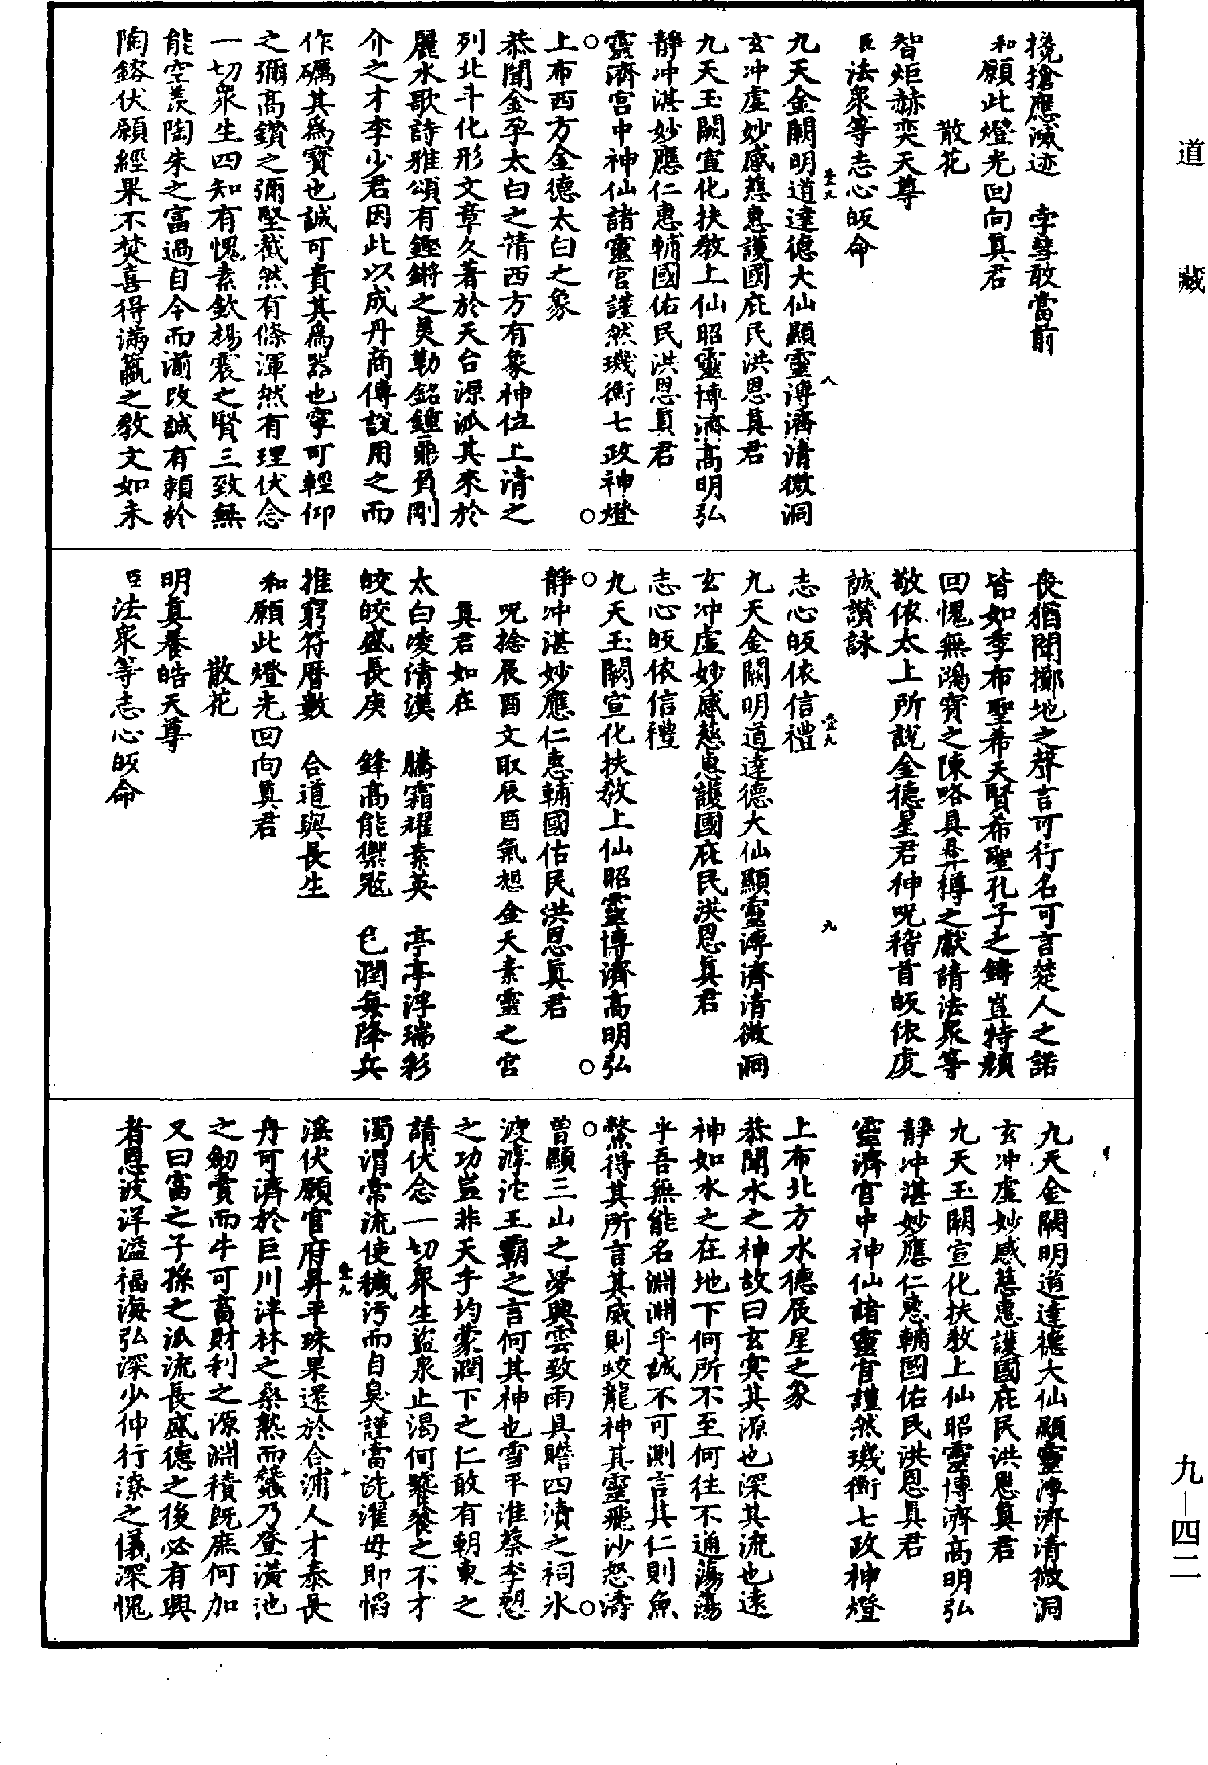 道藏
攙搶應滅迹　孛彗敢當前
和願此燈光回向真君
散花
智炬赫奕天尊
臣法衆等志心皈命
九天金闕明道達德大仙顯靈溥濟清微洞
玄冲虛妙感慈惠護國庇民洪恩真君
九天玉闕宣化扶教上仙昭靈博濟高明弘
静冲湛妙應仁惠輔國佑民洪恩真君
靈濟宫中神仙諸靈官謹然璣衡七政神燈
上布西方金德太白之象
恭聞金孕太白之精西方有象神位上清之
列北斗化形文章久著於天台源派其來於
麗水歌詩雅頌有鏗鏘之美勒銘鍾鼎負剛
介之才李少君因此以成丹商傅説用之而
作礪其爲寳也誠可貴其爲器也寧可輕仰
之彌高鑽之彌堅截然有條渾然有理伏念
一切衆生四知有愧素欽楊震之賢三致無
能空羨陶朱之富過自今而湔改誠有賴於
陶鎔伏願經果不焚喜得滿籯之教文如未
喪猶聞擲地之聲言可行名可言楚人之諾
皆如季布聖希天賢希聖孔子之鑄豈特顔
回愧無鴻寳之陳略具彝樽之獻請法衆等
敬依太上所説金德星君神呪稽首皈依虔
誠讚詠
志心皈依信禮
九天金闕明道達德大仙顯靈溥濟清微洞
玄冲虛妙感慈惠護國庇民洪恩真君
志心皈依信禮
九天玉闕宣化扶教上仙昭靈博濟高明弘
静冲湛妙應仁惠輔國佑民洪恩真君
呪捻辰酉文取辰酉氣想金天素靈之宫
真君如在
太白凌清漢　騰霜耀素英　亭亭浮瑞彩
皎皎盛長庚　鋒高能禦寇　色潤毎降兵
推窮符曆數　合道與長生
和願此燈光回向真君
散花
明真養皓天尊
臣法衆等志心皈命
九天金闕明道達德大仙顯靈溥濟清微洞
玄冲虛妙感慈惠護國庇民洪恩真君
九天玉闕宣化扶教上仙昭靈博濟高明弘
静冲湛妙應仁惠輔國佑民洪恩真君
靈濟宫中神仙諸靈官謹然璣衡七政神燈
上布北方水德辰星之象
恭聞水之神故曰玄冥其源也深其流也遠
神如水之在地下何所不至何往不通蕩蕩
乎吾無能名淵淵乎誠不可測言其仁則魚
鱉得其所言其威則蛟龍神其靈飛沙怒濤
曾顯三山之夢興雲致雨具瞻四瀆之祠氷
渡滹沱王霸之言何其神也雪平淮蔡李愬
之功豈非天乎均蒙潤下之仁敢有朝東之
請伏念一切衆生盜泉止渴何饕餮之不才
濁渭常流使穢污而自臭謹當洗濯毋即慆
淫伏願官府昇平珠果還於合浦人才泰長
舟可濟於巨川泮林之桑熟而蠶乃登潢池
之劒賣而牛可畜財利之源淵積既庶何加
又曰富之子孫之派流長盛德之後必有興
者恩波洋溢福海弘深少伸行潦之儀深愧
九—四二